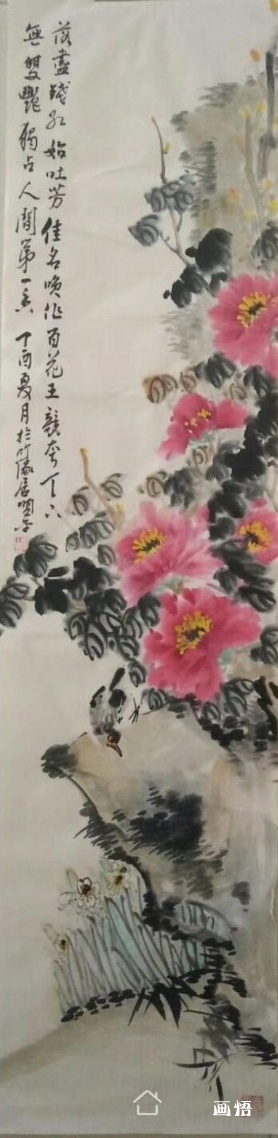 落盡残红始吐芳佳名唤作百花王競夸天下
無雙艷獨占人間第一香 丁酉夏月於竹
画悟